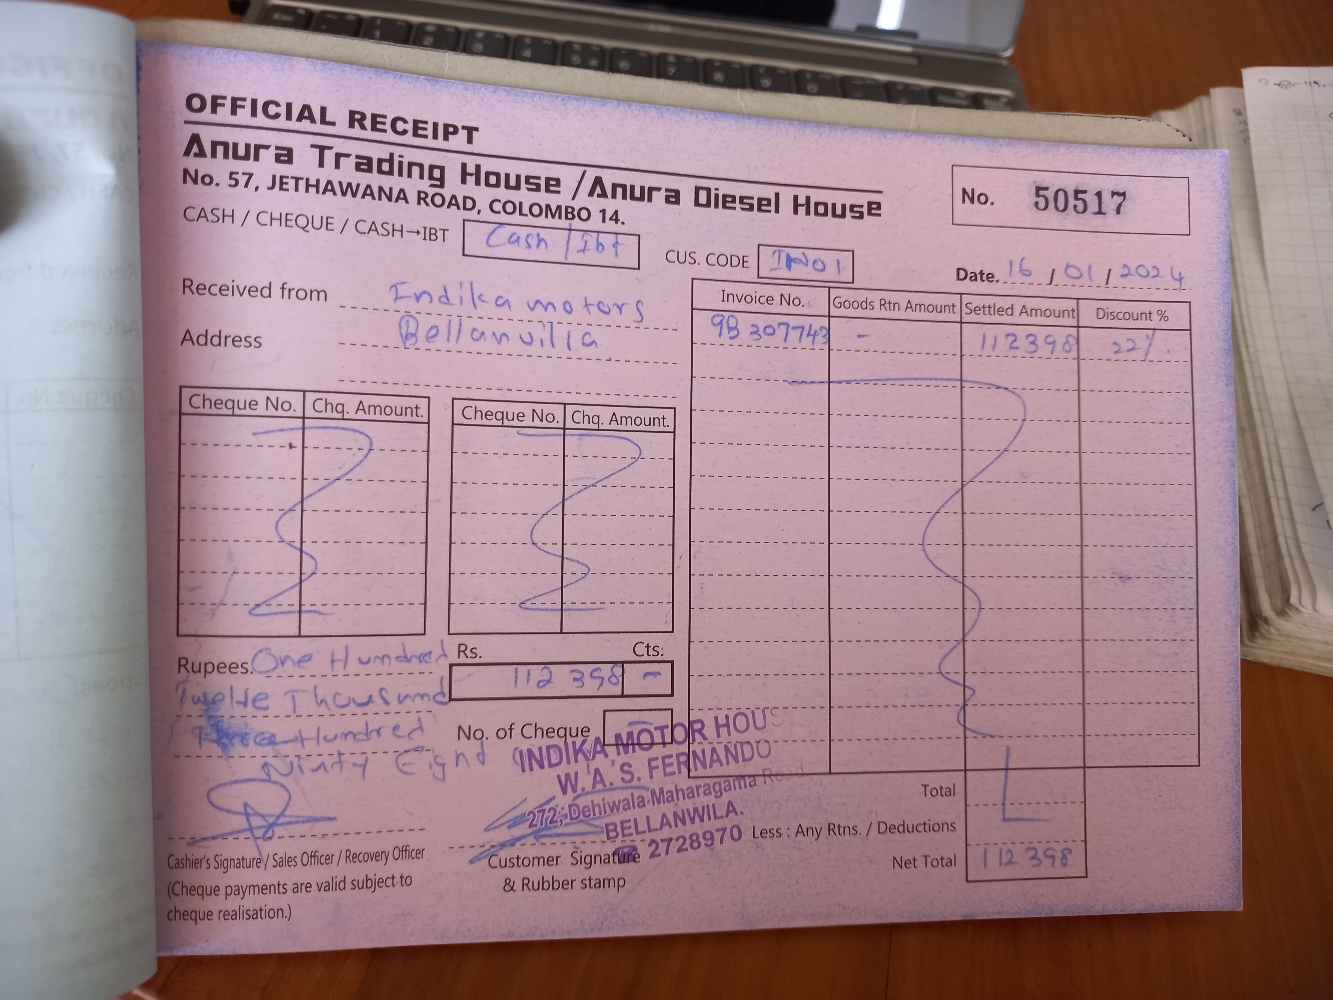 OFFICIAL RECEIPT
Anura Trading House /Anura Diesel House
No. 57, JETHAWANA ROAD, COLOMBO 14.
No. 50517
CASH / CHEQUE / CASH→IBT Cash / Ibt
CUS. CODE IN01
Date. 16 / 01 / 2024
Received from Indika motors
Address Bellanvilla
Invoice No. Goods Rtn Amount Settled Amount Discount %
9B 307743 - 112398 22%.
Cheque No. Chq. Amount. Cheque No. Chq. Amount.
Rupees. One Hundred
Twelve Thousand
Three Hundred
Ninty Eight
Rs. Cts.
112 398 -
No. of Cheque -
INDIKA MOTOR HOUS
W.A.S. FERNANDO
272, Dehiwala-Maharagama Road
BELLANWILA.
☎ 2728970
Total
Less : Any Rtns. / Deductions
Net Total 112398
Cashier's Signature / Sales Officer / Recovery Officer
(Cheque payments are valid subject to
cheque realisation.)
Customer Signature
& Rubber stamp